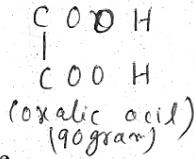 COOH
|
COOH
(oxalic acil)
(90gram)